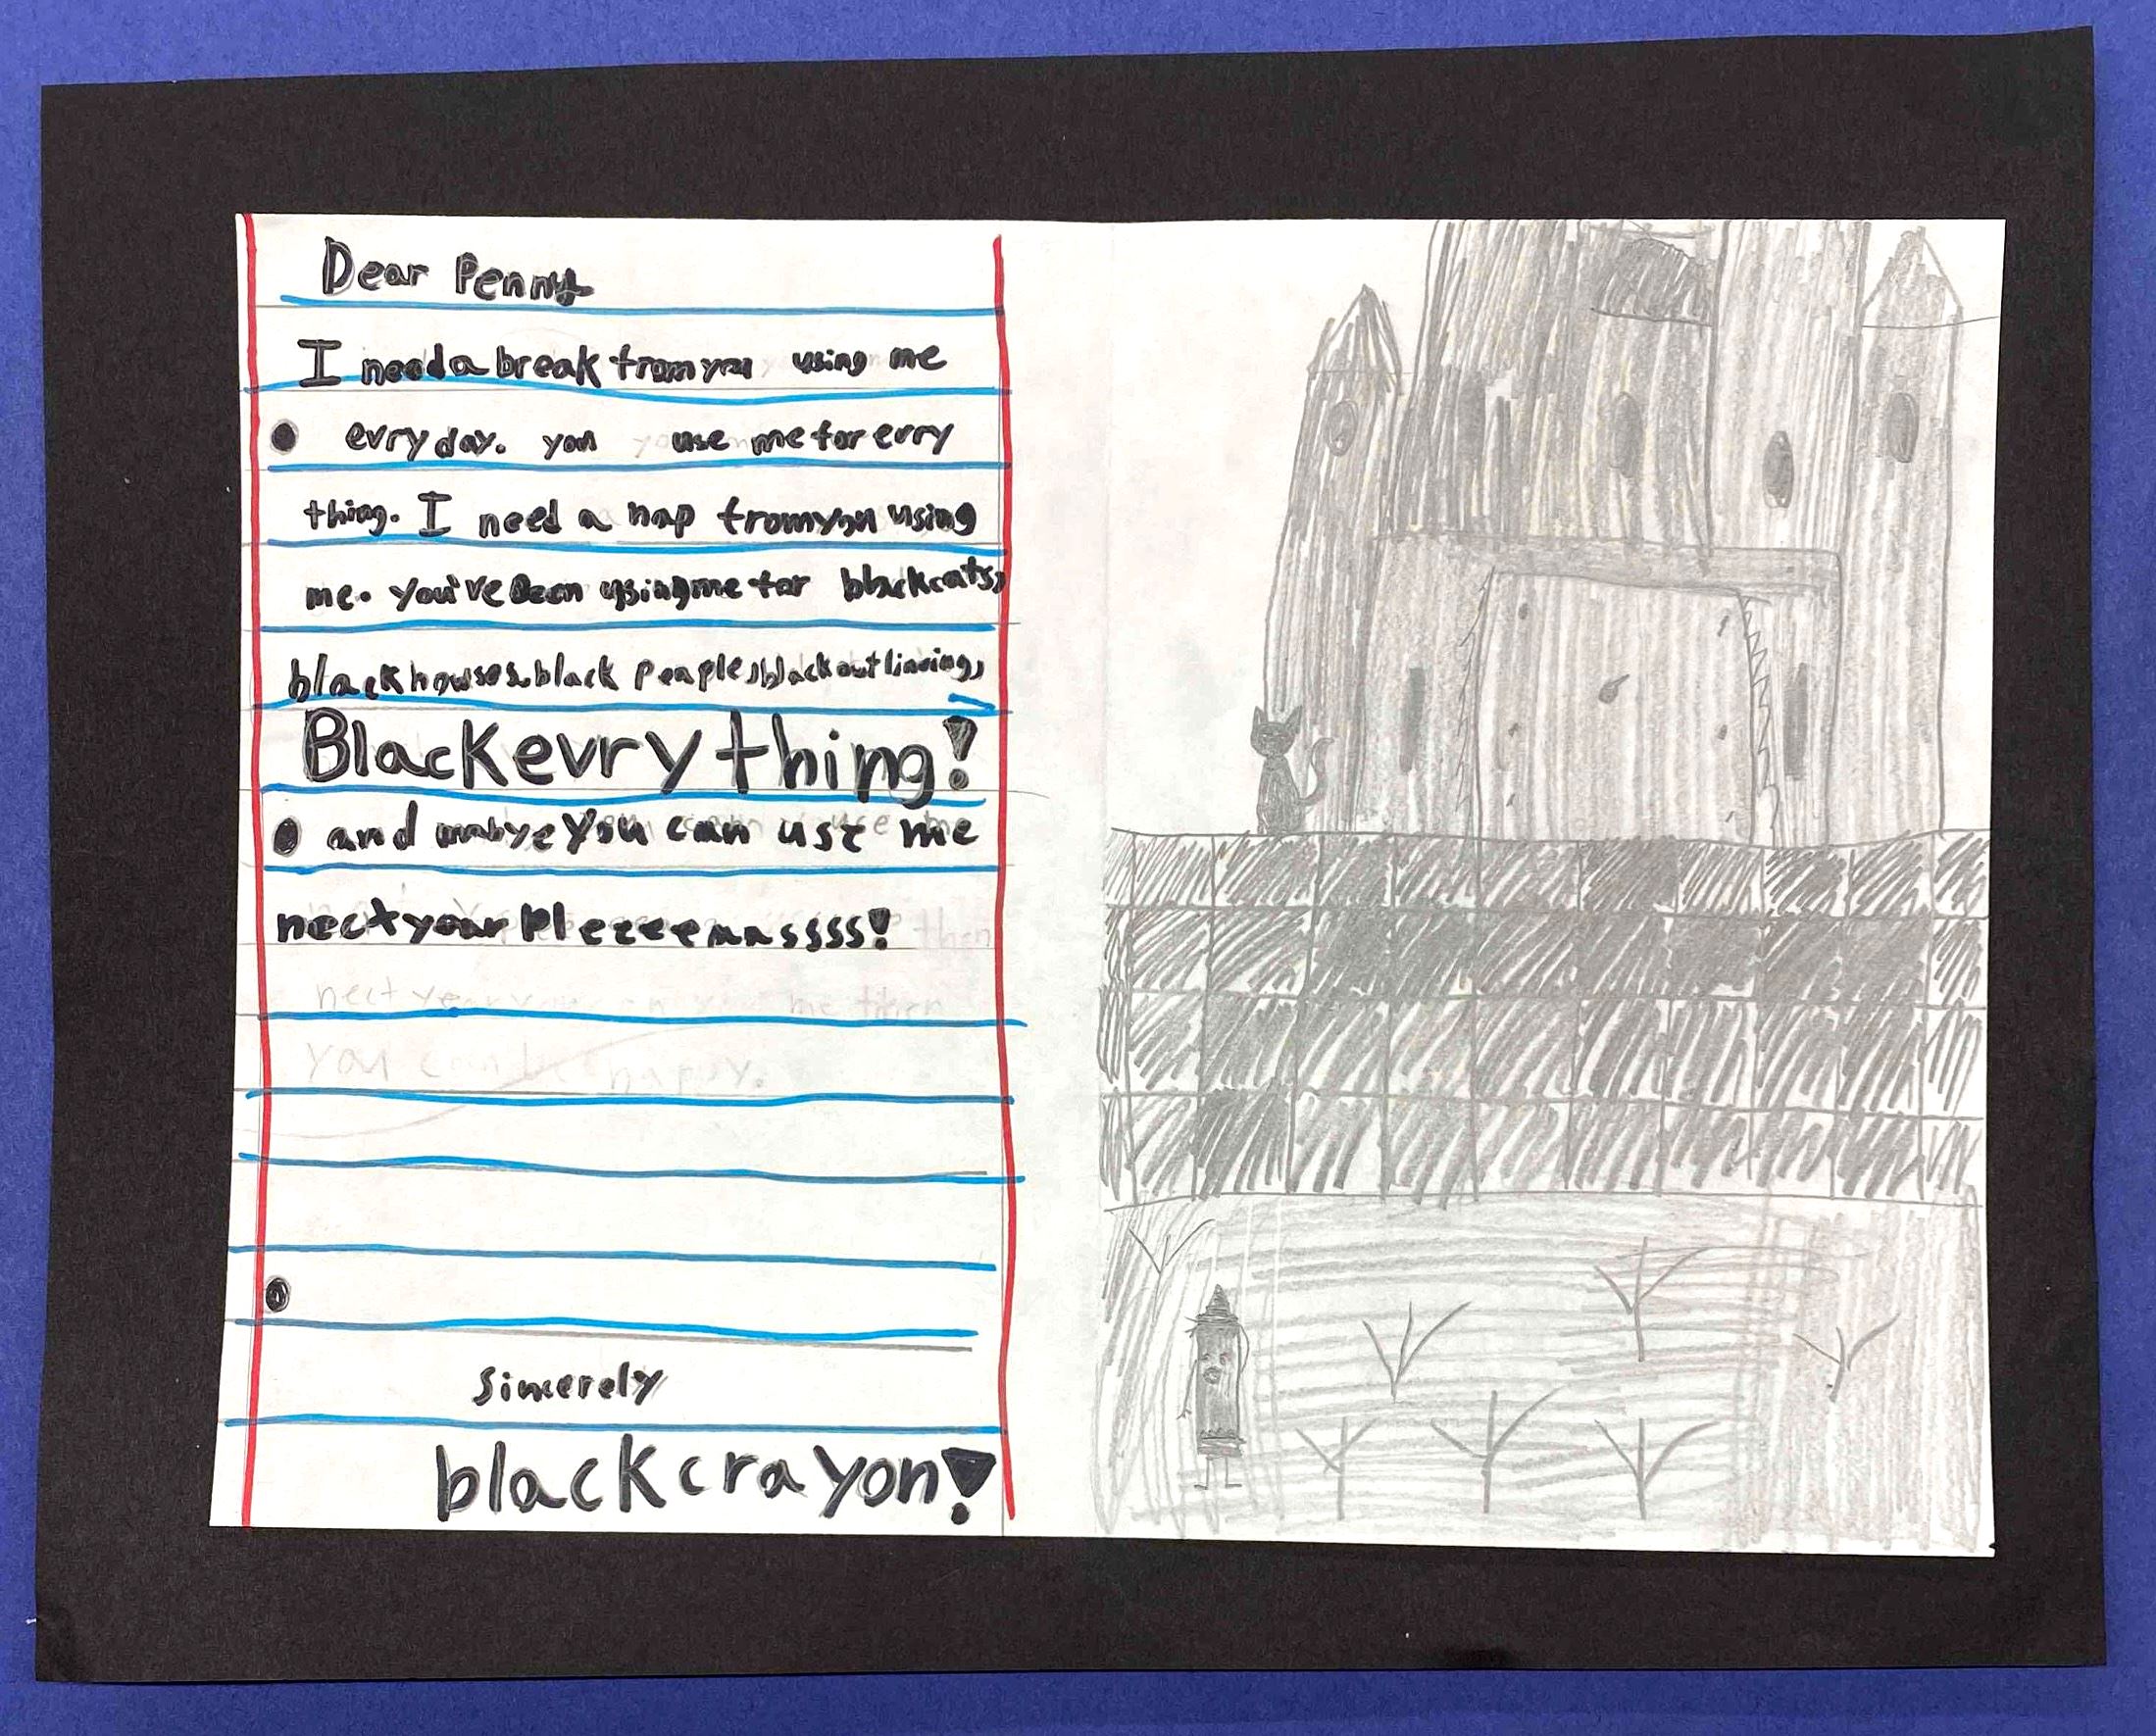 Dear Penny
I need a break from you using me
evry day. you use me for evry
thing. I need a nap from you using
me. You've Been using me for black cats,
black houses, black people, black out lineing,
Black evry thing!
and mabye you can use me
nect year Pleeeeeaassss!
nect year you me then
you can be happy.
Sincerely
black crayon!